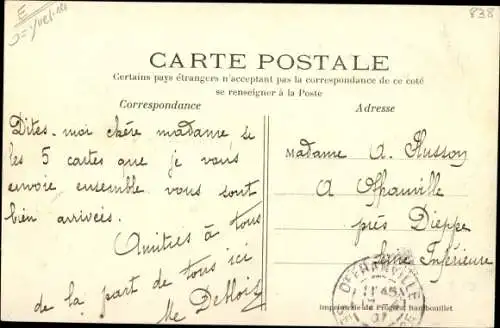 E
D=Yvelines
838
CARTE POSTALE
Certains pays étrangers n'acceptant pas la correspondance de ce coté
se renseigner à la Poste
Correspondance
Adresse
Dites-moi chère madame si
les 5 cartes que je vous
envoie ensemble vous sont
bien arrivées.
Amitiés à tous
de la part de tous ici
Me Deblois
Madame A. Husson
A Offranville
près Dieppe
Seine Inférieure
OFFRANVILLE
Imprimerie du Progrès Rambouillet